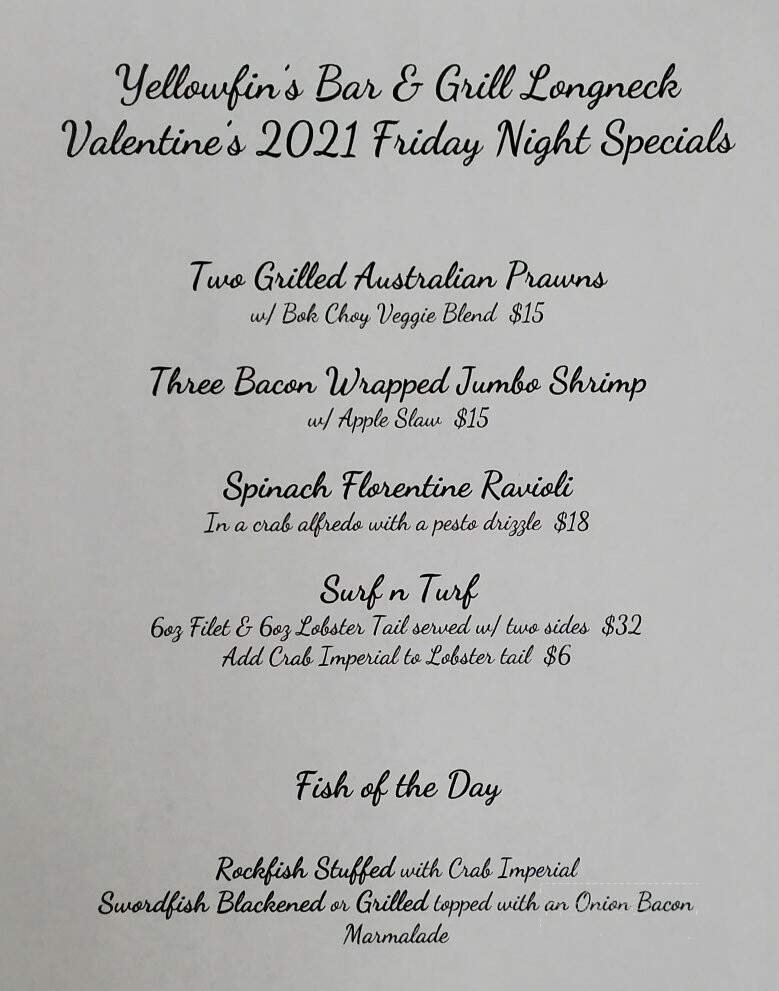 Yellowfin's Bar & Grill Longneck
Valentine's 2021 Friday Night Specials
Two Grilled Australian Prawns
w/ Bok Choy Veggie Blend $15
Three Bacon Wrapped Jumbo Shrimp
w/ Apple Slaw $15
Spinach Florentine Ravioli
In a crab alfredo with a pesto drizzle $18
Surf n Turf
6oz Filet & 6oz Lobster Tail served w/ two sides $32
Add Crab Imperial to Lobster tail $6
Fish of the Day
Rockfish Stuffed with Crab Imperial
Swordfish Blackened or Grilled topped with an Onion Bacon
Marmalade